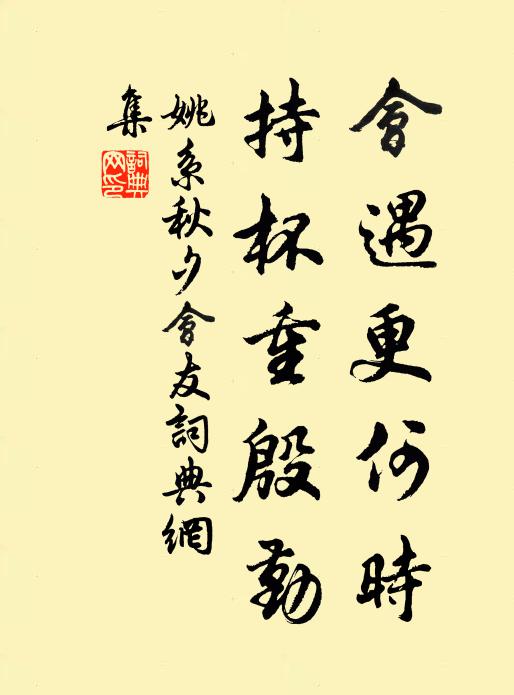 會遇更何時
持杯重殷勤
姚系秋夕會友詞典網
集
詞典
网印